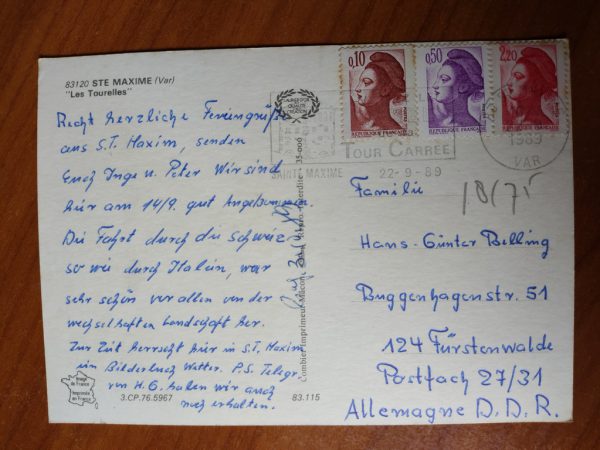 83120 STE MAXIME (Var)
"Les Tourelles"
Recht herzliche Feriengrüße
aus S.T. Maxim, senden
Euch Inge u. Peter Wir sind
hier am 14/9. gut Angekommen.
Die Fahrt durch die Schweiz
so wie durch Italien, war
sehr schön vor allen von der
wechselhaften Landschaft her.
Zur Zeit herrscht hier in S.T. Maxim
ein Bilderbuch Wetter. P.S. Telegr.
von H.G. haben wir auch
noch erhalten.
Image de France
Imprimée en France
3.CP.76.5967
83.115
Combier imprimeur Mâcon
0,10
REPUBLIQUE FRANÇAISE
0,50
REPUBLIQUE FRANÇAISE
2,20
REPUBLIQUE FRANÇAISE
TOUR CARRÉE
SAINTE MAXIME
22-9-89
1989
VAR
18/75
Familie
Hans-Günter Belling
Buggenhagenstr. 51
124 Fürstenwalde
Postfach 27/31
Allemagne D.D.R.